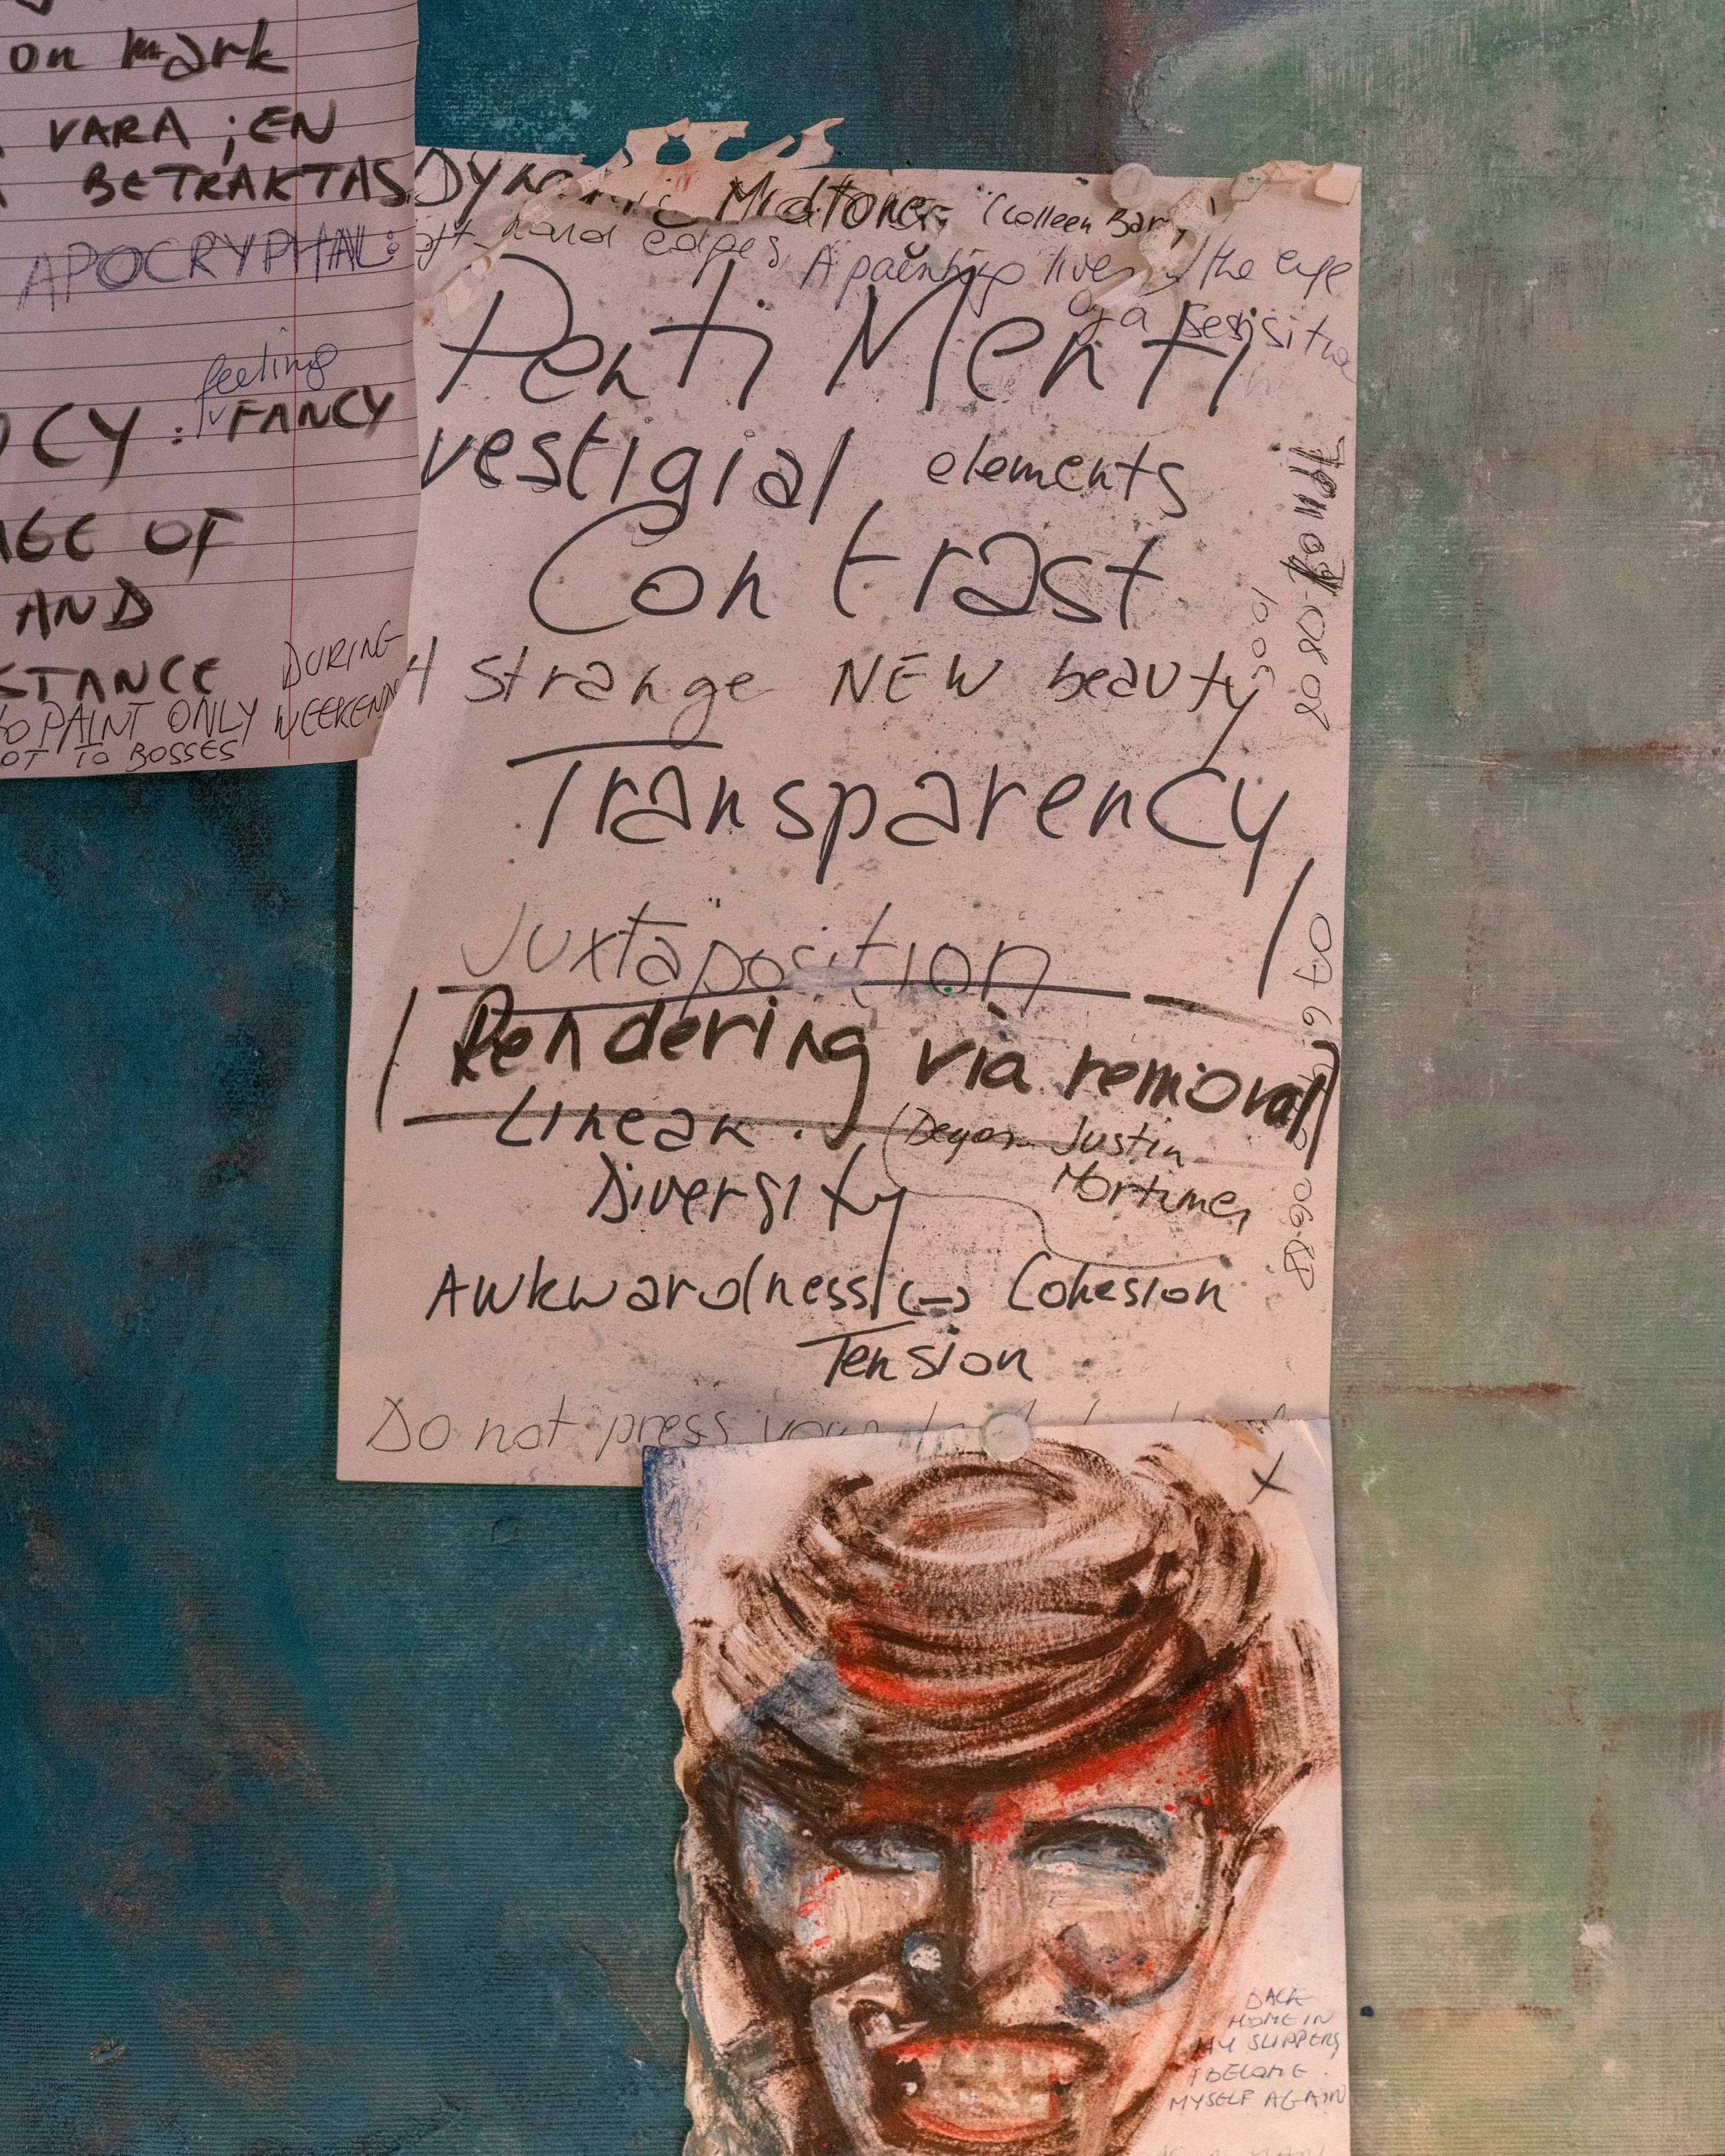 on mark
VARA ; EN
BETRAKTAS
APOCRYPHAL:
feeling
CY : FANCY
AGE OF
AND
STANCE
DURING
TO PAINT ONLY WEEKENDS
OT TO BOSSES
Midtones (Colleen Bar
hard edges, A painting lives the eye
of a
Penti Menti
vestigial elements
Contrast
A strange NEW beauty
Transparency
Juxtaposition
Rendering via removal
Linear.
Justin
Mortimer
Diversity
Awkwardness (–) Cohesion
Tension
Do not press your
X
BACK
HOME IN
MY SLIPPERS,
I BECOME
MYSELF AGAIN